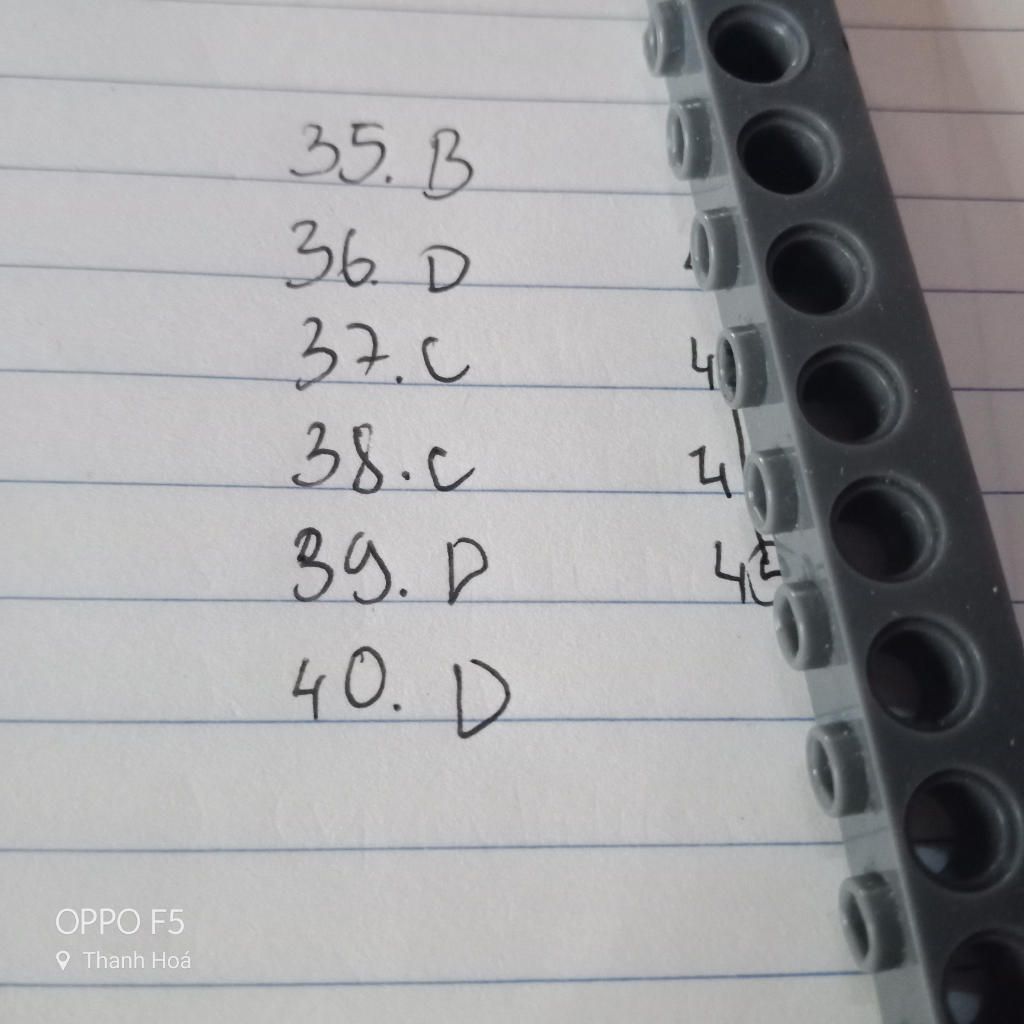 35. B
36. D
37. C
38. C
39. D
40. D
4
4
4
OPPO F5
Thanh Hoá